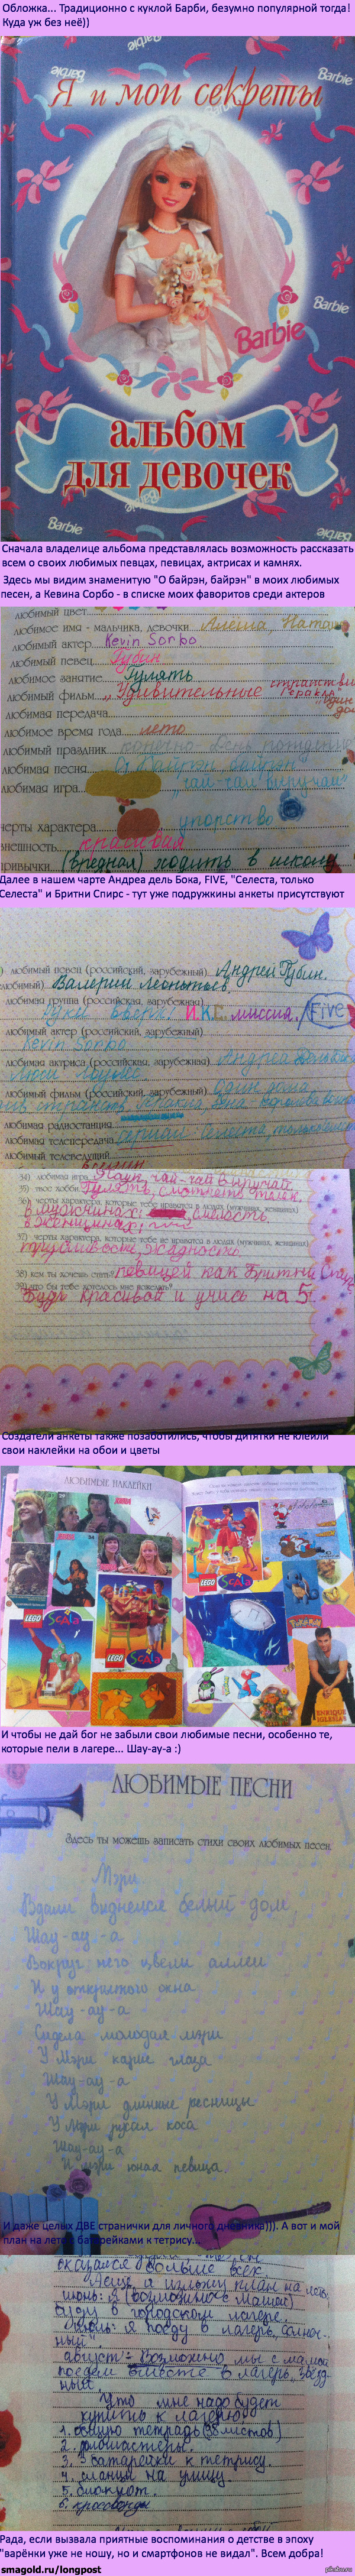 Обложка... Традиционно с куклой Барби, безумно популярной тогда!
Куда уж без неё))
Barbie
Я и мои секреты
Barbie
альбом
для девочек
Сначала владелице альбома представлялась возможность рассказать
всем о своих любимых певцах, певицах, актрисах и камнях.
Здесь мы видим знаменитую "О байрэн, байрэн" в моих любимых
песен, а Кевина Сорбо - в списке моих фаворитов среди актеров
любимый цвет
любимое имя - мальчика, девочки Алёша Ната
любимый актер Kevin Sorbo
любимый певец Губин
любимое занятие Гулять
любимый фильм „Удивительные странствия
любимая передача
любимое время года лето
любимый праздник конечно День рождения
любимая песня О байрэн байрэн
любимая игра „чай-чай выручай"
черты характера упорство
внешность красивая
привычки (вредная) ходить в школу
Далее в нашем чарте Андреа дель Бока, FIVE, "Селеста, только
Селеста" и Бритни Спирс - тут уже подружкины анкеты присутствуют
любимый певец (российский, зарубежный) Андрей Губин.
Валерий Леонтьев.
любимая группа (российская, зарубежная)
Руки вверх! И.К.С. миссия. FIVE
любимый актер (российский, зарубежный)
Kevin Sorbo
любимая актриса (российская, зарубежная) Андреа
любимый фильм (российский, зарубежный) Один дома
любимая радиостанция
любимая телепередача
любимый телеведущий
34) любимая игра чай-чай выручай
35) твое хобби Гулять, смотреть телек.
36) черты характера, которые тебе нравятся в людях (мужчинах, женщинах)
в мужчинах: смелость,
в женщинах:
37) черты характера, которые тебе не нравятся в людях (мужчинах, женщинах)
трусливость, жадность.
38) кем ты хочешь стать? певицей как Бритни Спирс
39) что бы тебе хотелось мне пожелать?
Будь красивой и учись на 5.
Создатели анкеты также позаботились, чтобы дитятки не клеили
свои наклейки на обои и цветы
ЛЮБИМЫЕ НАКЛЕЙКИ
XENA
LEGO SCALA
LEGO SCALA
LEGO
LEGO SCALA
ENRIQUE
IGLESIAS
И чтобы не дай бог не забыли свои любимые песни, особенно те,
которые пели в лагере... Шау-ау-а :)
ЛЮБИМЫЕ ПЕСНИ
Здесь ты можешь записать стихи своих любимых песен.
Мэри.
Вдали виднелся белый дом,
Шау-ау-а
Вокруг него цвели аллеи
И у открытого окна
Шау-ау-а
Сидела молодая мэри
У Мэри карие глаза
Шау-ау-а
У Мэри длинные ресницы
У Мэри русая коса
Шау-ау-а
И мэри юная певица.
И даже целых ДВЕ странички для личного дневника))). А вот и мой
план на лето с батарейками к тетрису...
оказался больше всех.
Ладно, я изложу план на лето,
июнь: я (возможно с мамой)
буду в городском лагере.
Июль: я поеду в лагерь „солнеч-
ный".
август: Возможно мы с мамой
поедем вместе в лагерь „звёзд-
ный".
Что мне надо будет
купить к лагерю
1. общую тетрадь (98 листов)
2. фломастеры.
3. 3 батарейки к тетрису.
4. сланцы на улицу.
5. блокнот.
6. кроссворды
Рада, если вызвала приятные воспоминания о детстве в эпоху
"варёнки уже не ношу, но и смартфонов не видал". Всем добра!
smagold.ru/longpost
pikabu.ru